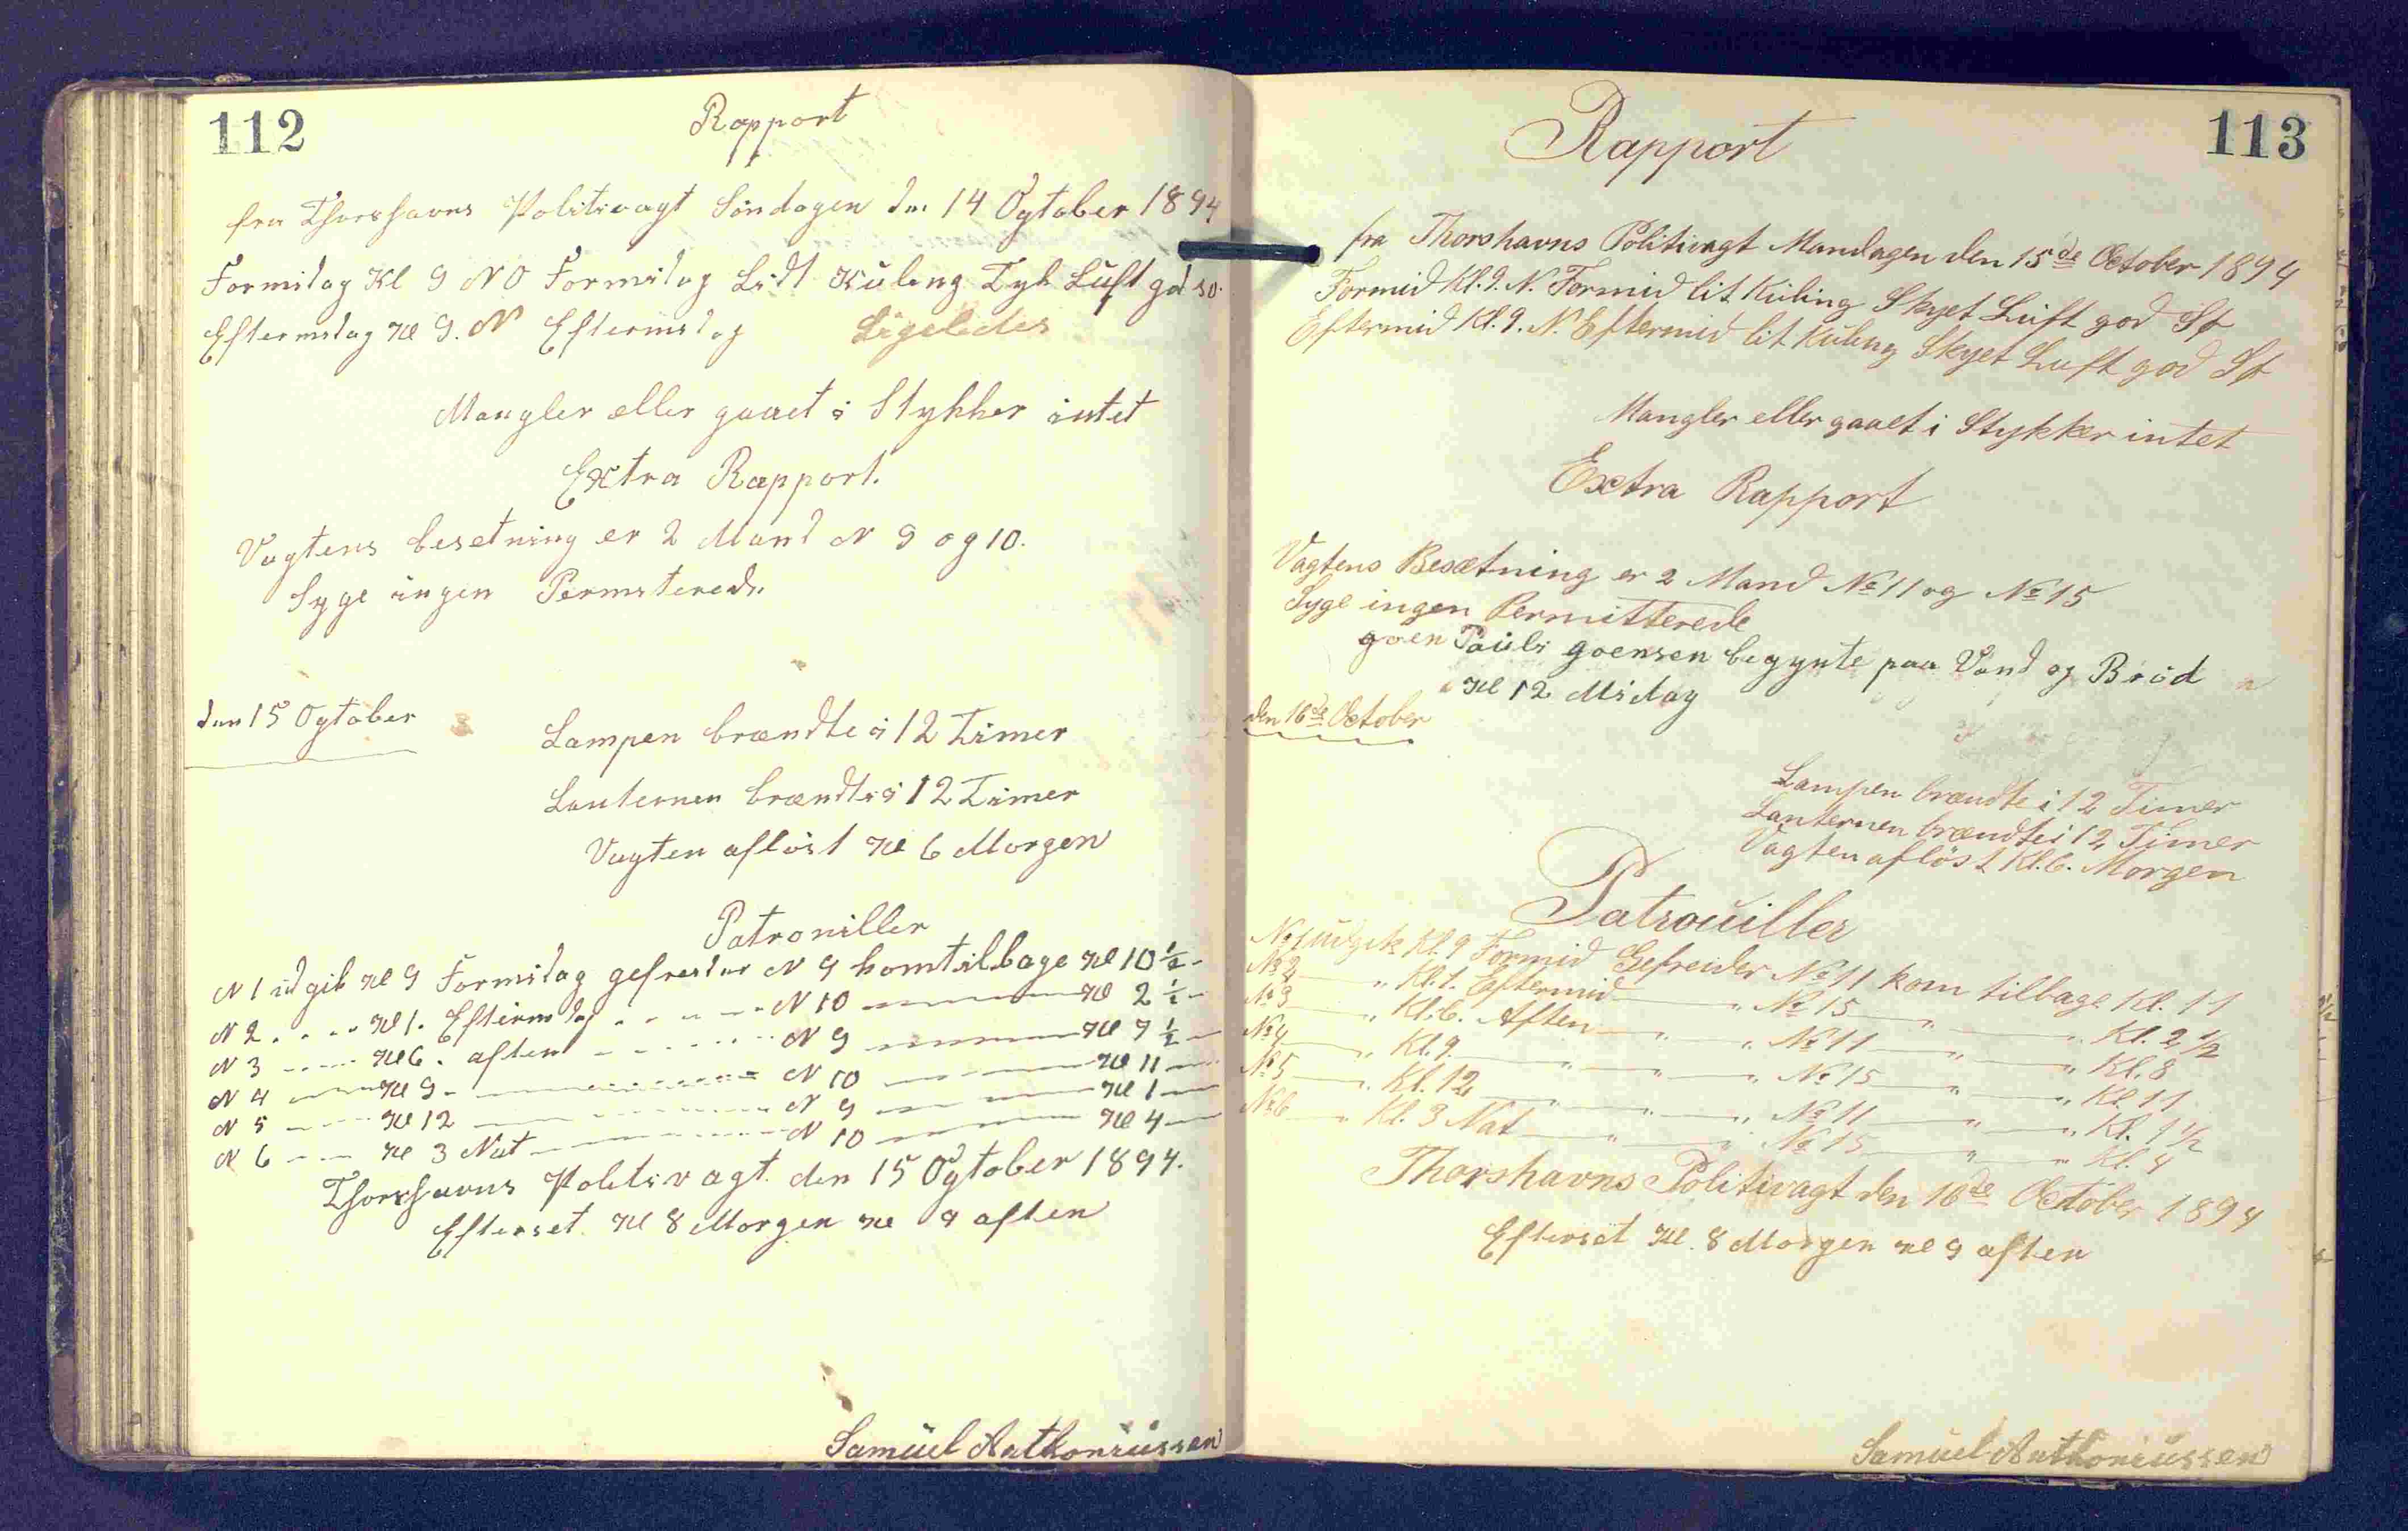 112
Rapport
fra Thorshavns Politivagt Söndagen den 14 Ogtober 1894
Formidag Kl 9 NO Formidag Lidt Kuling Tyk Luft god so.
Eftermidag Kl 9. N Eftermidag Ligeledes
Mangler eller gaaet i Stykker intet
Extra Rapport.
Vagtens besetning er 2 Mand N 9 og 10.
Syge ingen Permitered.
den 15 Ogtober
Lampen brændte i 12 Timer
Lanternen brændte i 12 Timer
Vagten aflöst Kl 6 Morgen
Patrouiller
N 1 udgik Kl 9 Formidag gefreider N 9 kom tilbage Kl 10 ½
N 2 Kl 1. Eftermidag N 10 Kl 2 ½
N 3 Kl 6. aften N 9 Kl 7 ½
N 4 Kl 9 N 10 Kl 11
N 5 Kl 12 N 9 Kl 1
N 6 Kl 3 Nat N 10 Kl 4
Thorshavns Politivagt. den 15 Ogtober 1894.
Efterset. Kl 8 Morgen Kl 9 aften
Samuel Anthoniussen
113
Rapport
fra Thorshavns Politivagt Mandagen den 15de October 1894
Formid Kl. 9. N. Formid lit Kuling Skyet Luft god St
Eftermid Kl. 9. N. Eftermid lit Kuling Skyet Luft god St
Mangler eller gaaet i Stykker intet
Extra Rapport
Vagtens Besætning er 2 Mand No 11 og No 15
Syge ingen Permitterede
goen Pauli goensen begynte paa Vand og Bröd
Kl 12 Midag
den 16de October
Lampen brændte i 12 Timer
Lanternen brændte i 12 Timer
Vagten aflöst Kl. 6. Morgen
Patrouiller
No 1 udgik Kl. 9 Formid Gefreider No 11 kom tilbage Kl. 11
No 2 " Kl. 1. Eftermid " No 15 " " Kl. 2 ½
No 3 " Kl. 6. Aften " " No 11 " " Kl. 8
No 4 " Kl. 9. " " " No 15 " " Kl. 11
No 5 " Kl. 12 " " " No 11 " " Kl. 1 ½
No 6 " Kl. 3 Nat " " No 15 " " Kl. 4
Thorshavns Politivagt den 16de October 1894
Efterset Kl. 8 Morgen Kl 9 aften
Samuel Anthoniussen